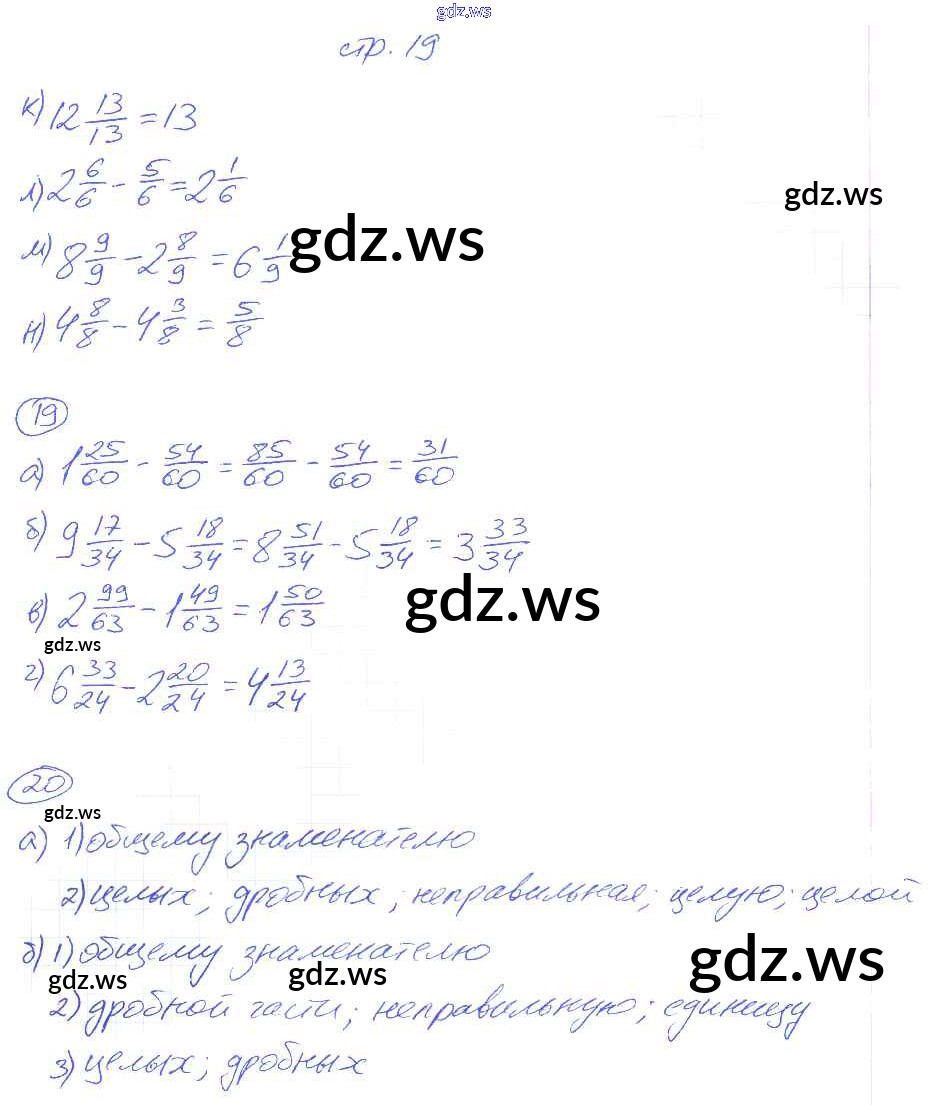 gdz.ws
стр. 19
к) 12 13/13 = 13
gdz.ws
л) 2 6/6 - 5/6 = 2 1/6
gdz.ws
м) 8 9/9 - 2 8/9 = 6 1/9
н) 4 8/8 - 4 3/8 = 5/8
19
а) 1 25/60 - 54/60 = 85/60 - 54/60 = 31/60
б) 9 17/34 - 5 18/34 = 8 51/34 - 5 18/34 = 3 33/34
gdz.ws
в) 2 99/63 - 1 49/63 = 1 50/63
gdz.ws
г) 6 33/24 - 2 20/24 = 4 13/24
20
gdz.ws
а) 1) общему знаменателю
2) целых; дробных; неправильная; целую; целой
б) 1) общему знаменателю
gdz.ws
gdz.ws
gdz.ws
2) дробной части; неправильную; единицу
3) целых; дробных